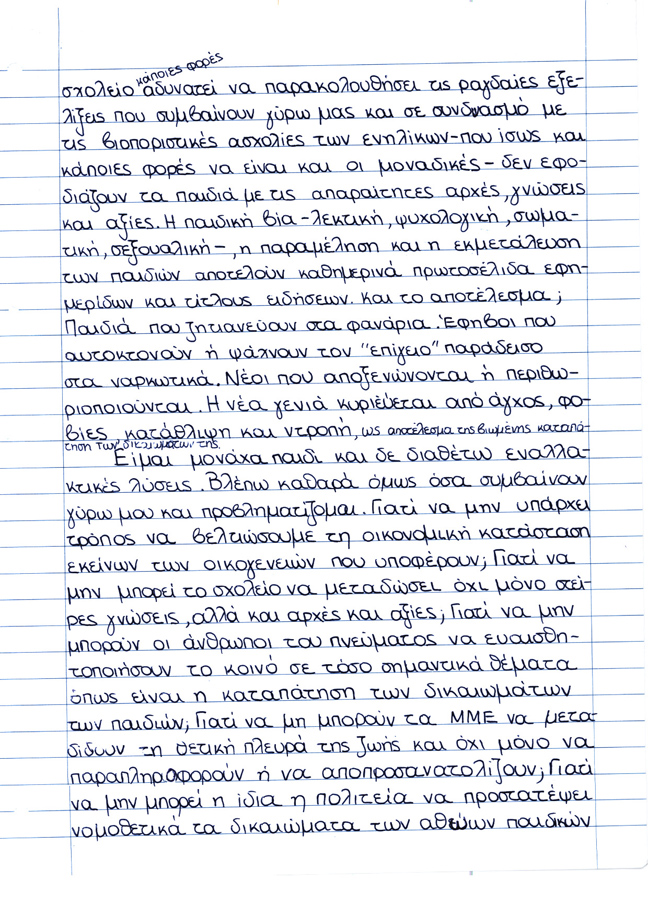 κάποιες φορές
σχολείο αδυνατεί να παρακολουθήσει τις ραγδαίες εξε-
λίξεις που συμβαίνουν γύρω μας και σε συνδυασμό με
τις βιοποριστικές ασχολίες των ενηλίκων-που ίσως και
κάποιες φορές να είναι και οι μοναδικές - δεν εφο-
διάζουν τα παιδιά με τις απαραίτητες αρχές, γνώσεις
και αξίες. Η παιδική βία -λεκτική, ψυχολογική, σωμα-
τική, σεξουαλική-, η παραμέληση και η εκμετάλευση
των παιδιών αποτελούν καθημερινά πρωτοσέλιδα εφη-
μερίδων και τίτλους ειδήσεων. Και το αποτέλεσμα;
Παιδιά που ζητιανεύουν στα φανάρια. Έφηβοι που
αυτοκτονούν ή ψάχνουν τον "επίγειο" παράδεισο
στα ναρκωτικά. Νέοι που αποξενώνονται ή περιθω-
ριοποιούνται. Η νέα γενιά κυριεύεται από άγχος, φο-
βίες, κατάθλιψη και ντροπή, ως αποτέλεσμα της βιωμένης καταπά-
τηση των δικαιωμάτων της.
Είμαι μονάχα παιδί και δε διαθέτω εναλλα-
κτικές λύσεις. Βλέπω καθαρά όμως όσα συμβαίνουν
γύρω μου και προβληματίζομαι. Γιατί να μην υπάρχει
τρόπος να βελτιώσουμε τη οικονομική κατάσταση
εκείνων των οικογενειών που υποφέρουν; Γιατί να
μην μπορεί το σχολείο να μεταδώσει όχι μόνο στεί-
ρες γνώσεις, αλλά και αρχές και αξίες; Γιατί να μην
μπορούν οι άνθρωποι του πνεύματος να ευαισθη-
τοποιήσουν το κοινό σε τόσο σημαντικά θέματα
όπως είναι η καταπάτηση των δικαιωμάτων
των παιδιών; Γιατί να μη μπορούν τα ΜΜΕ να μετα-
δίδουν τη θετική πλευρά της ζωής και όχι μόνο να
παραπληροφορούν ή να αποπροσανατολίζουν; Γιατί
να μην μπορεί η ίδια η πολιτεία να προστατέψει
νομοθετικά τα δικαιώματα των αθώων παιδικών